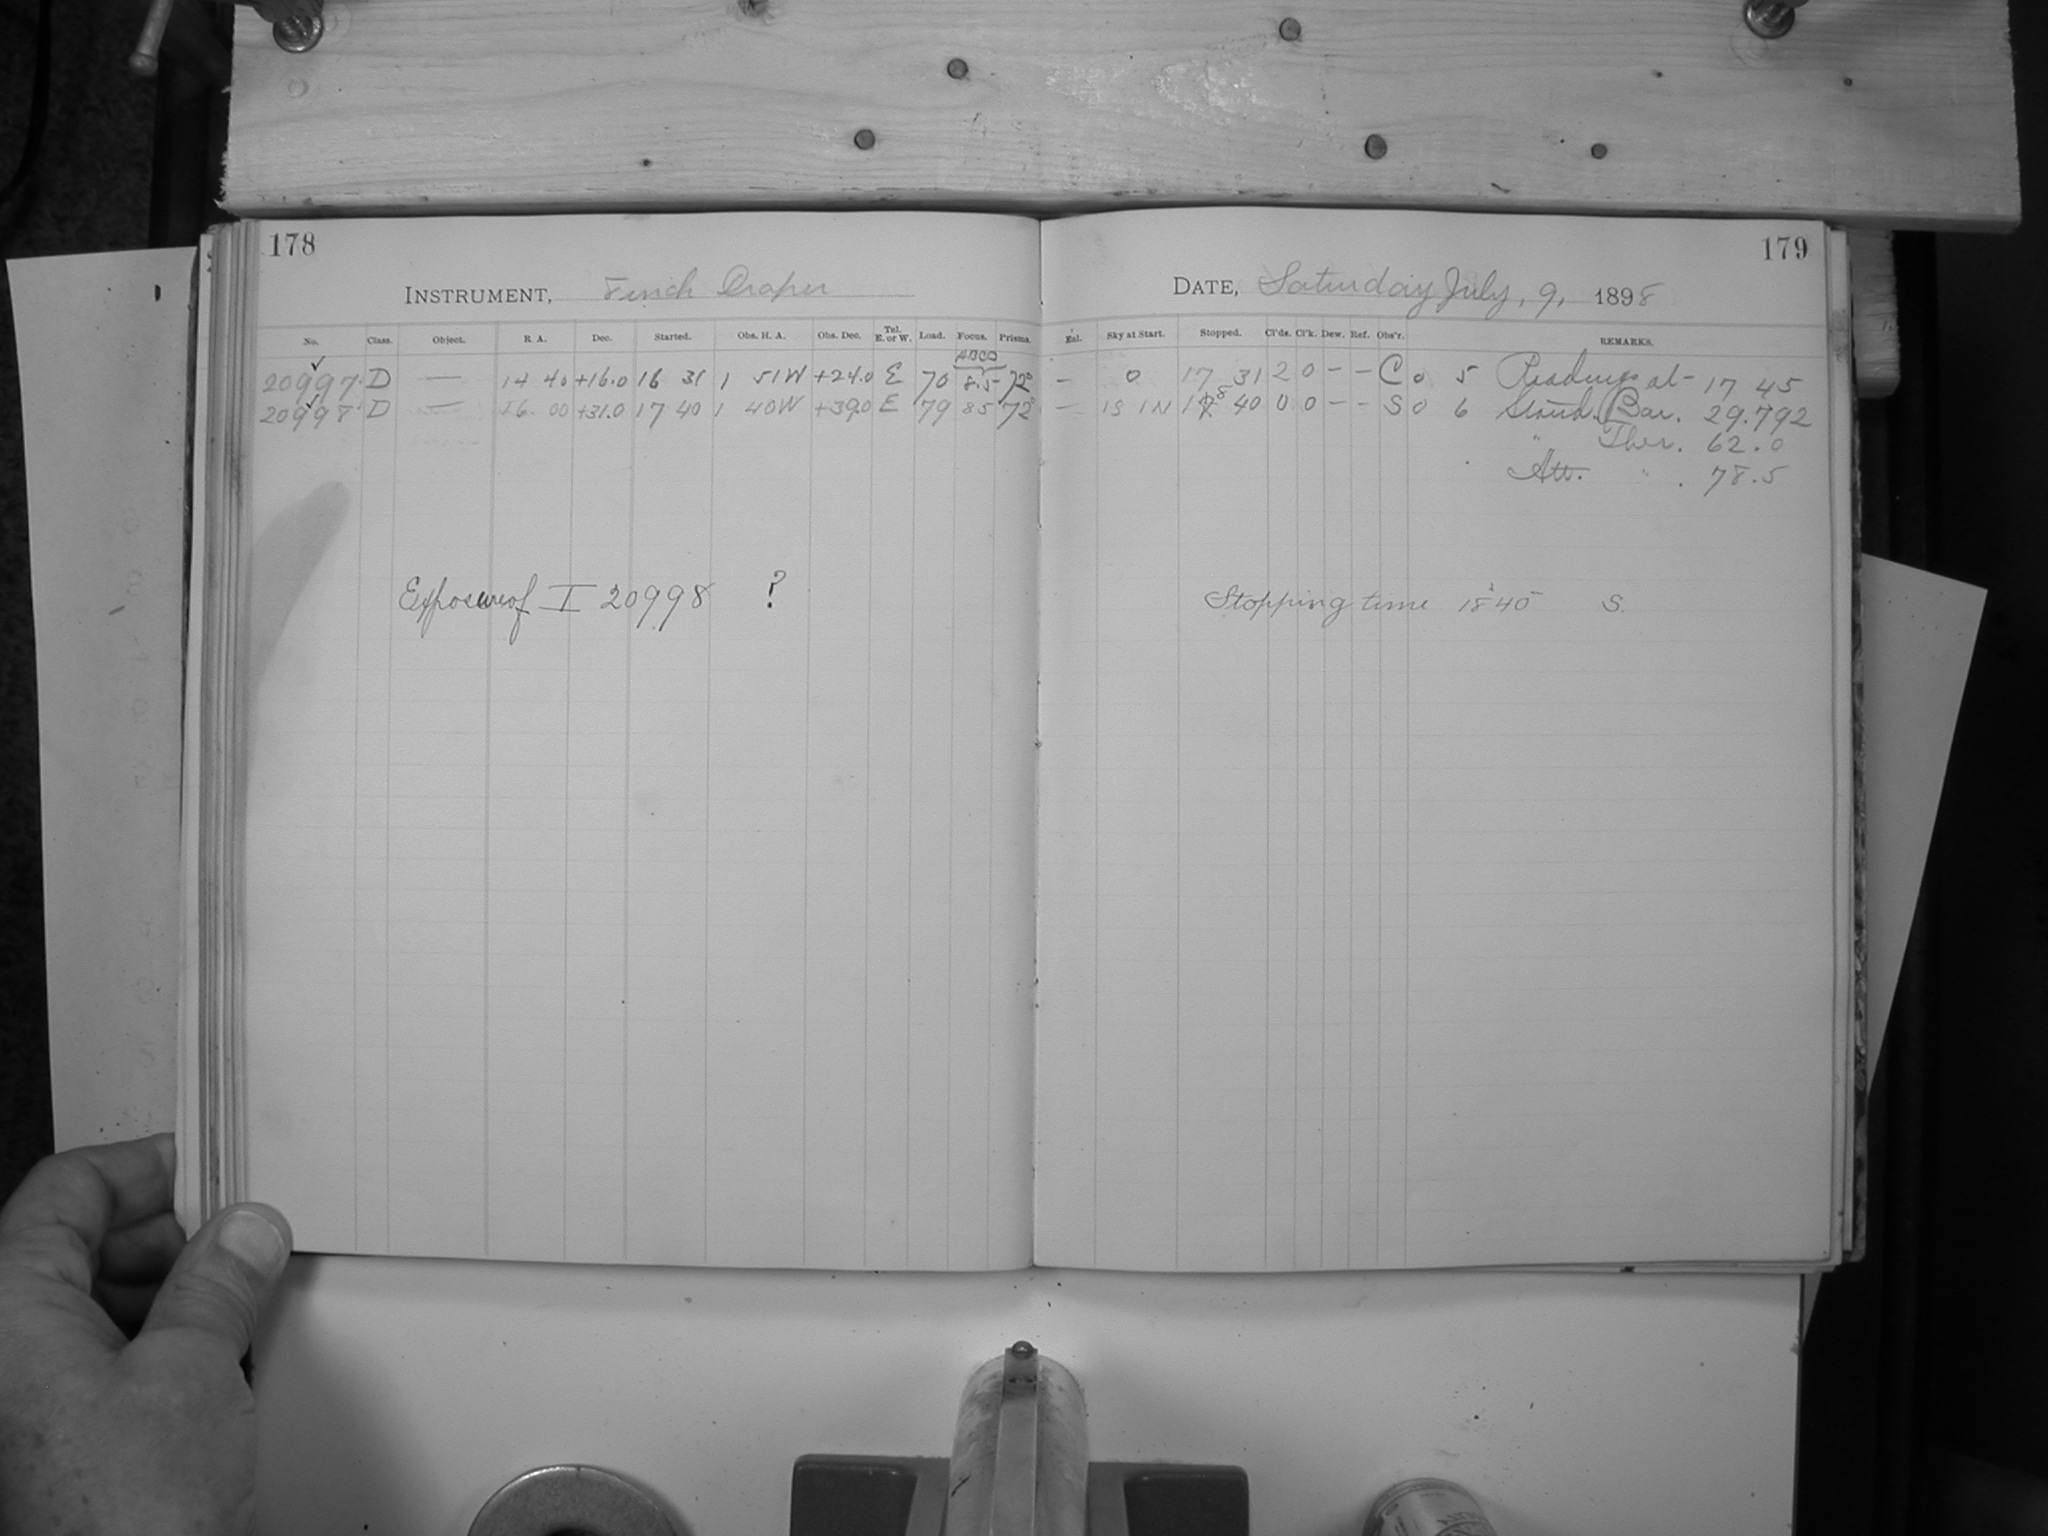 178
INSTRUMENT, 8 inch Draper
No. Class. Object. R. A. Dec. Started. Obs. H. A. Obs. Dec. Tel. E. or W. Load. Focus. Prisms.
ABCD
20997 D — 14 40 +16.0 16 31 1 51W +24.0 E 70 8.5 72°
20998 D — 16 00 +31.0 17 40 1 40W +39.0 E 79 85 72°
Exposure of I 20998 ?
179
DATE, Saturday July, 9, 1898
Enl. Sky at Start. Stopped. Cl'ds. Cl'k. Dew. Ref. Obs'r. REMARKS.
– 0 17 31 2 0 – – C 0 5 Readings at 17 45
– 1S 1N 18 40 0 0 – – S 0 6 Stand. Bar. 29.792
" Ther. 62.0
Att. " . 78.5
Stopping time 18 40 S.